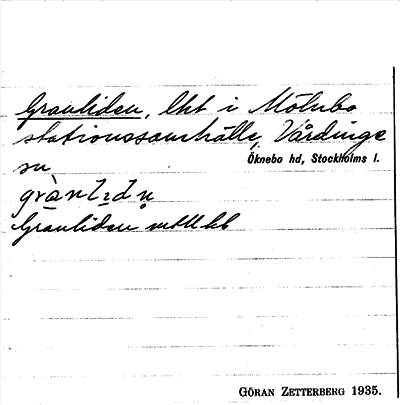 Granliden, lht i Mölnbo
stationssamhälle, Vårdinge
Öknebo hd, Stockholms l.
sn
Granliden
GÖRAN ZETTERBERG 1935.